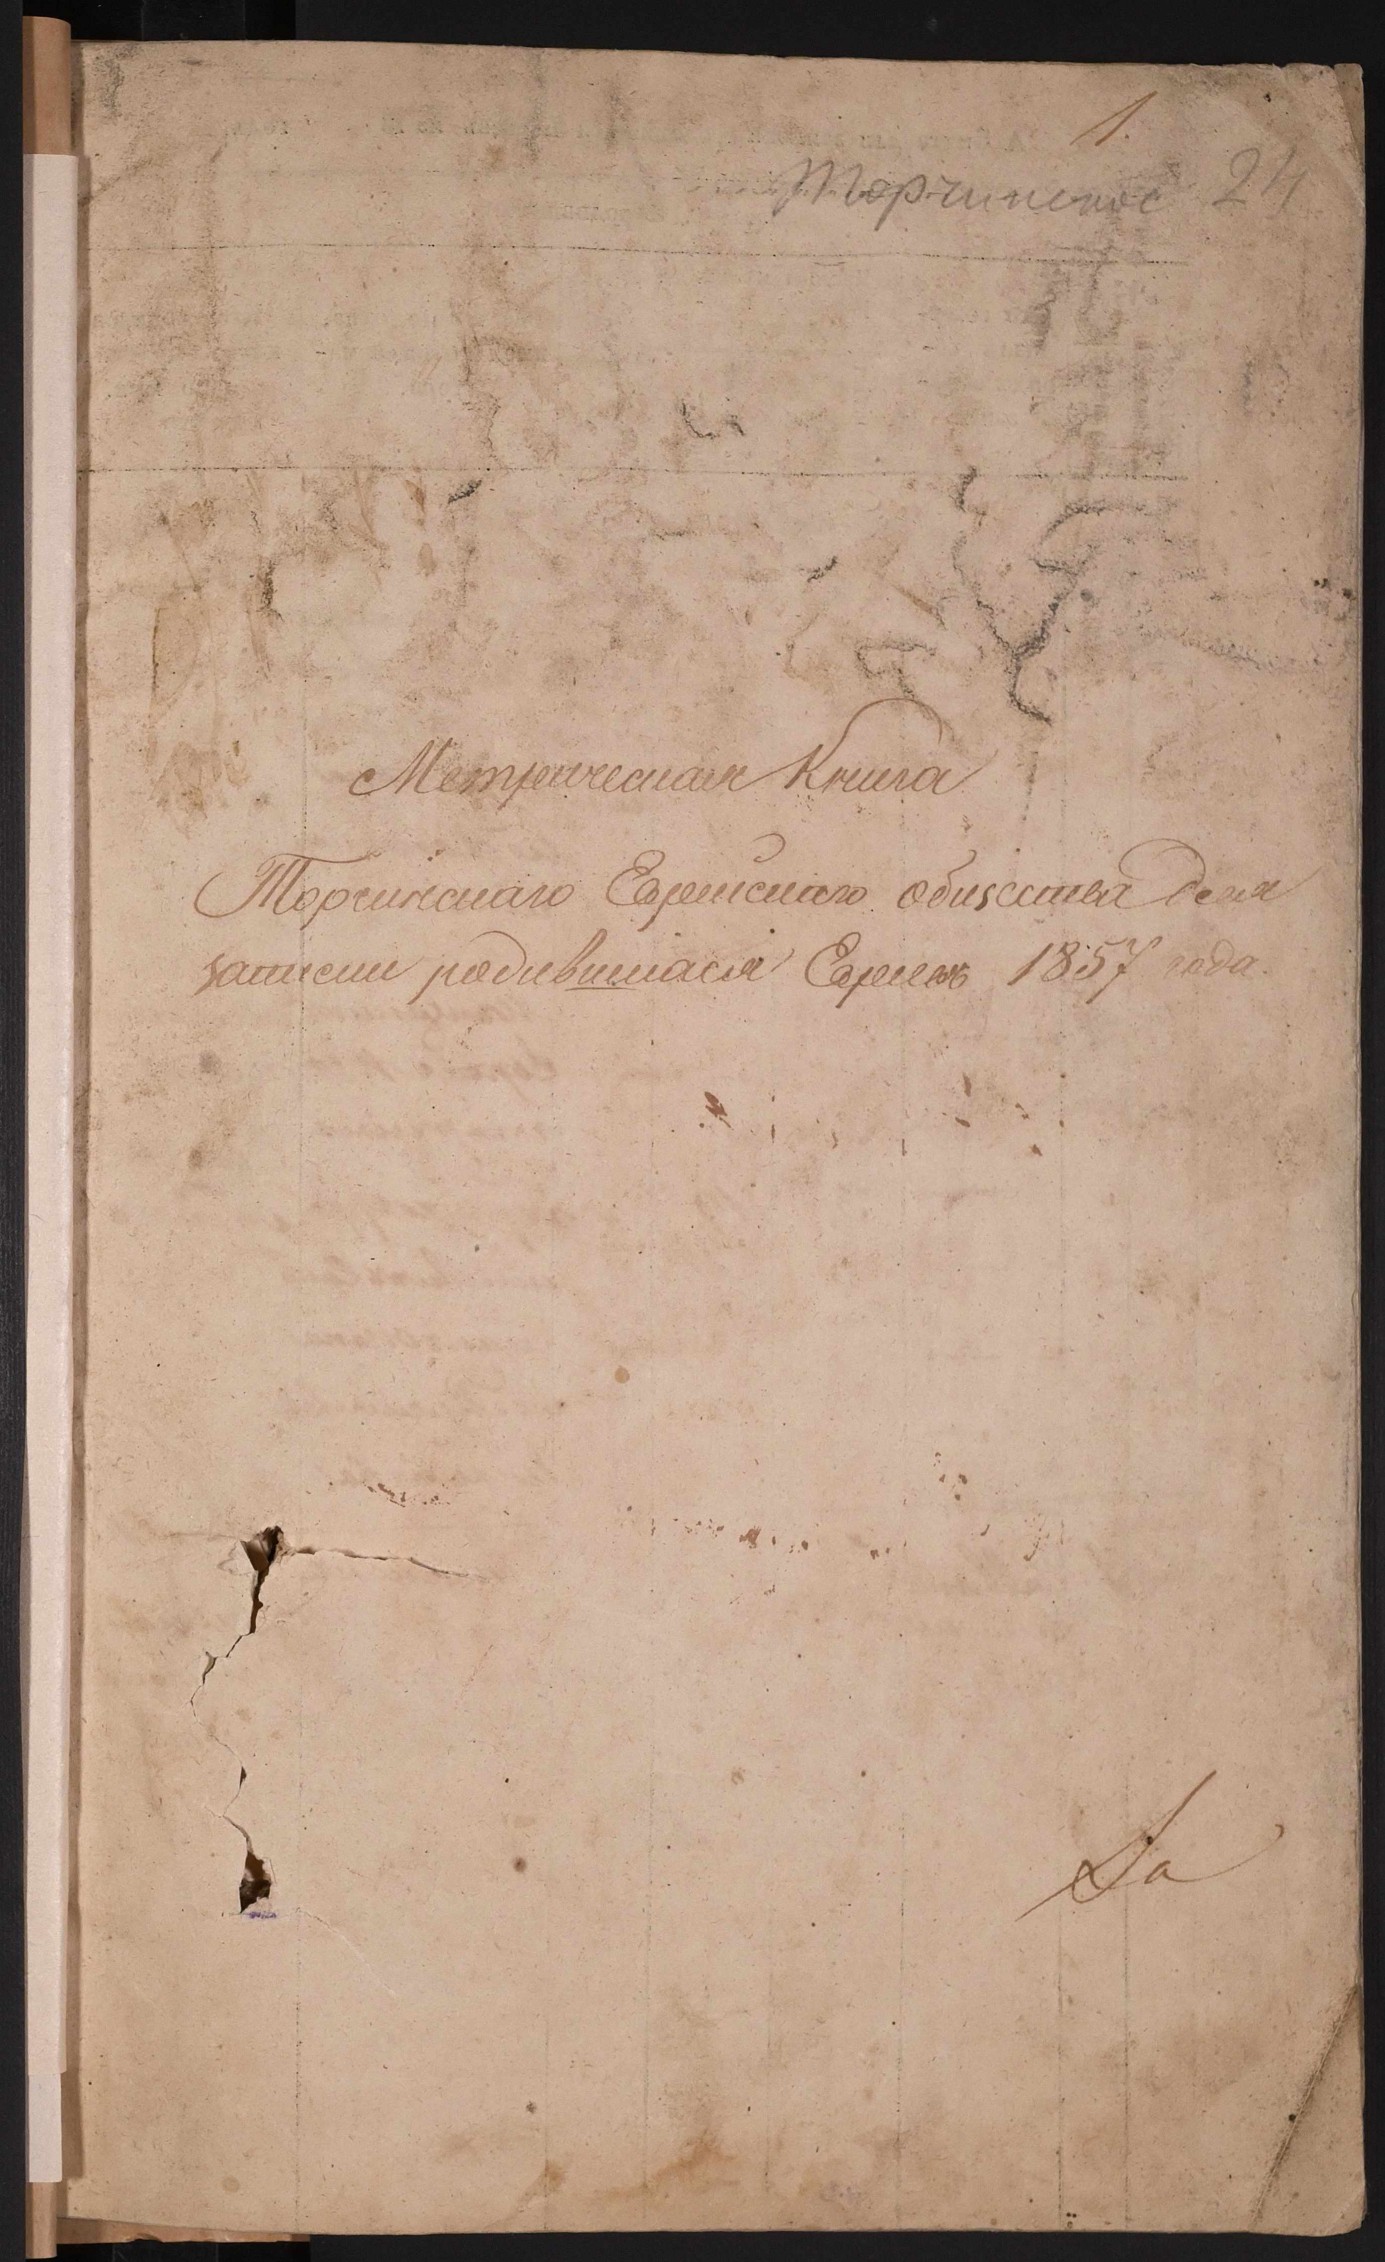 1.
Торчинское 24
Метрическая Книга
Торчинскаго Еврейскаго общества для
записки родившихся Евреевъ 1857 года.